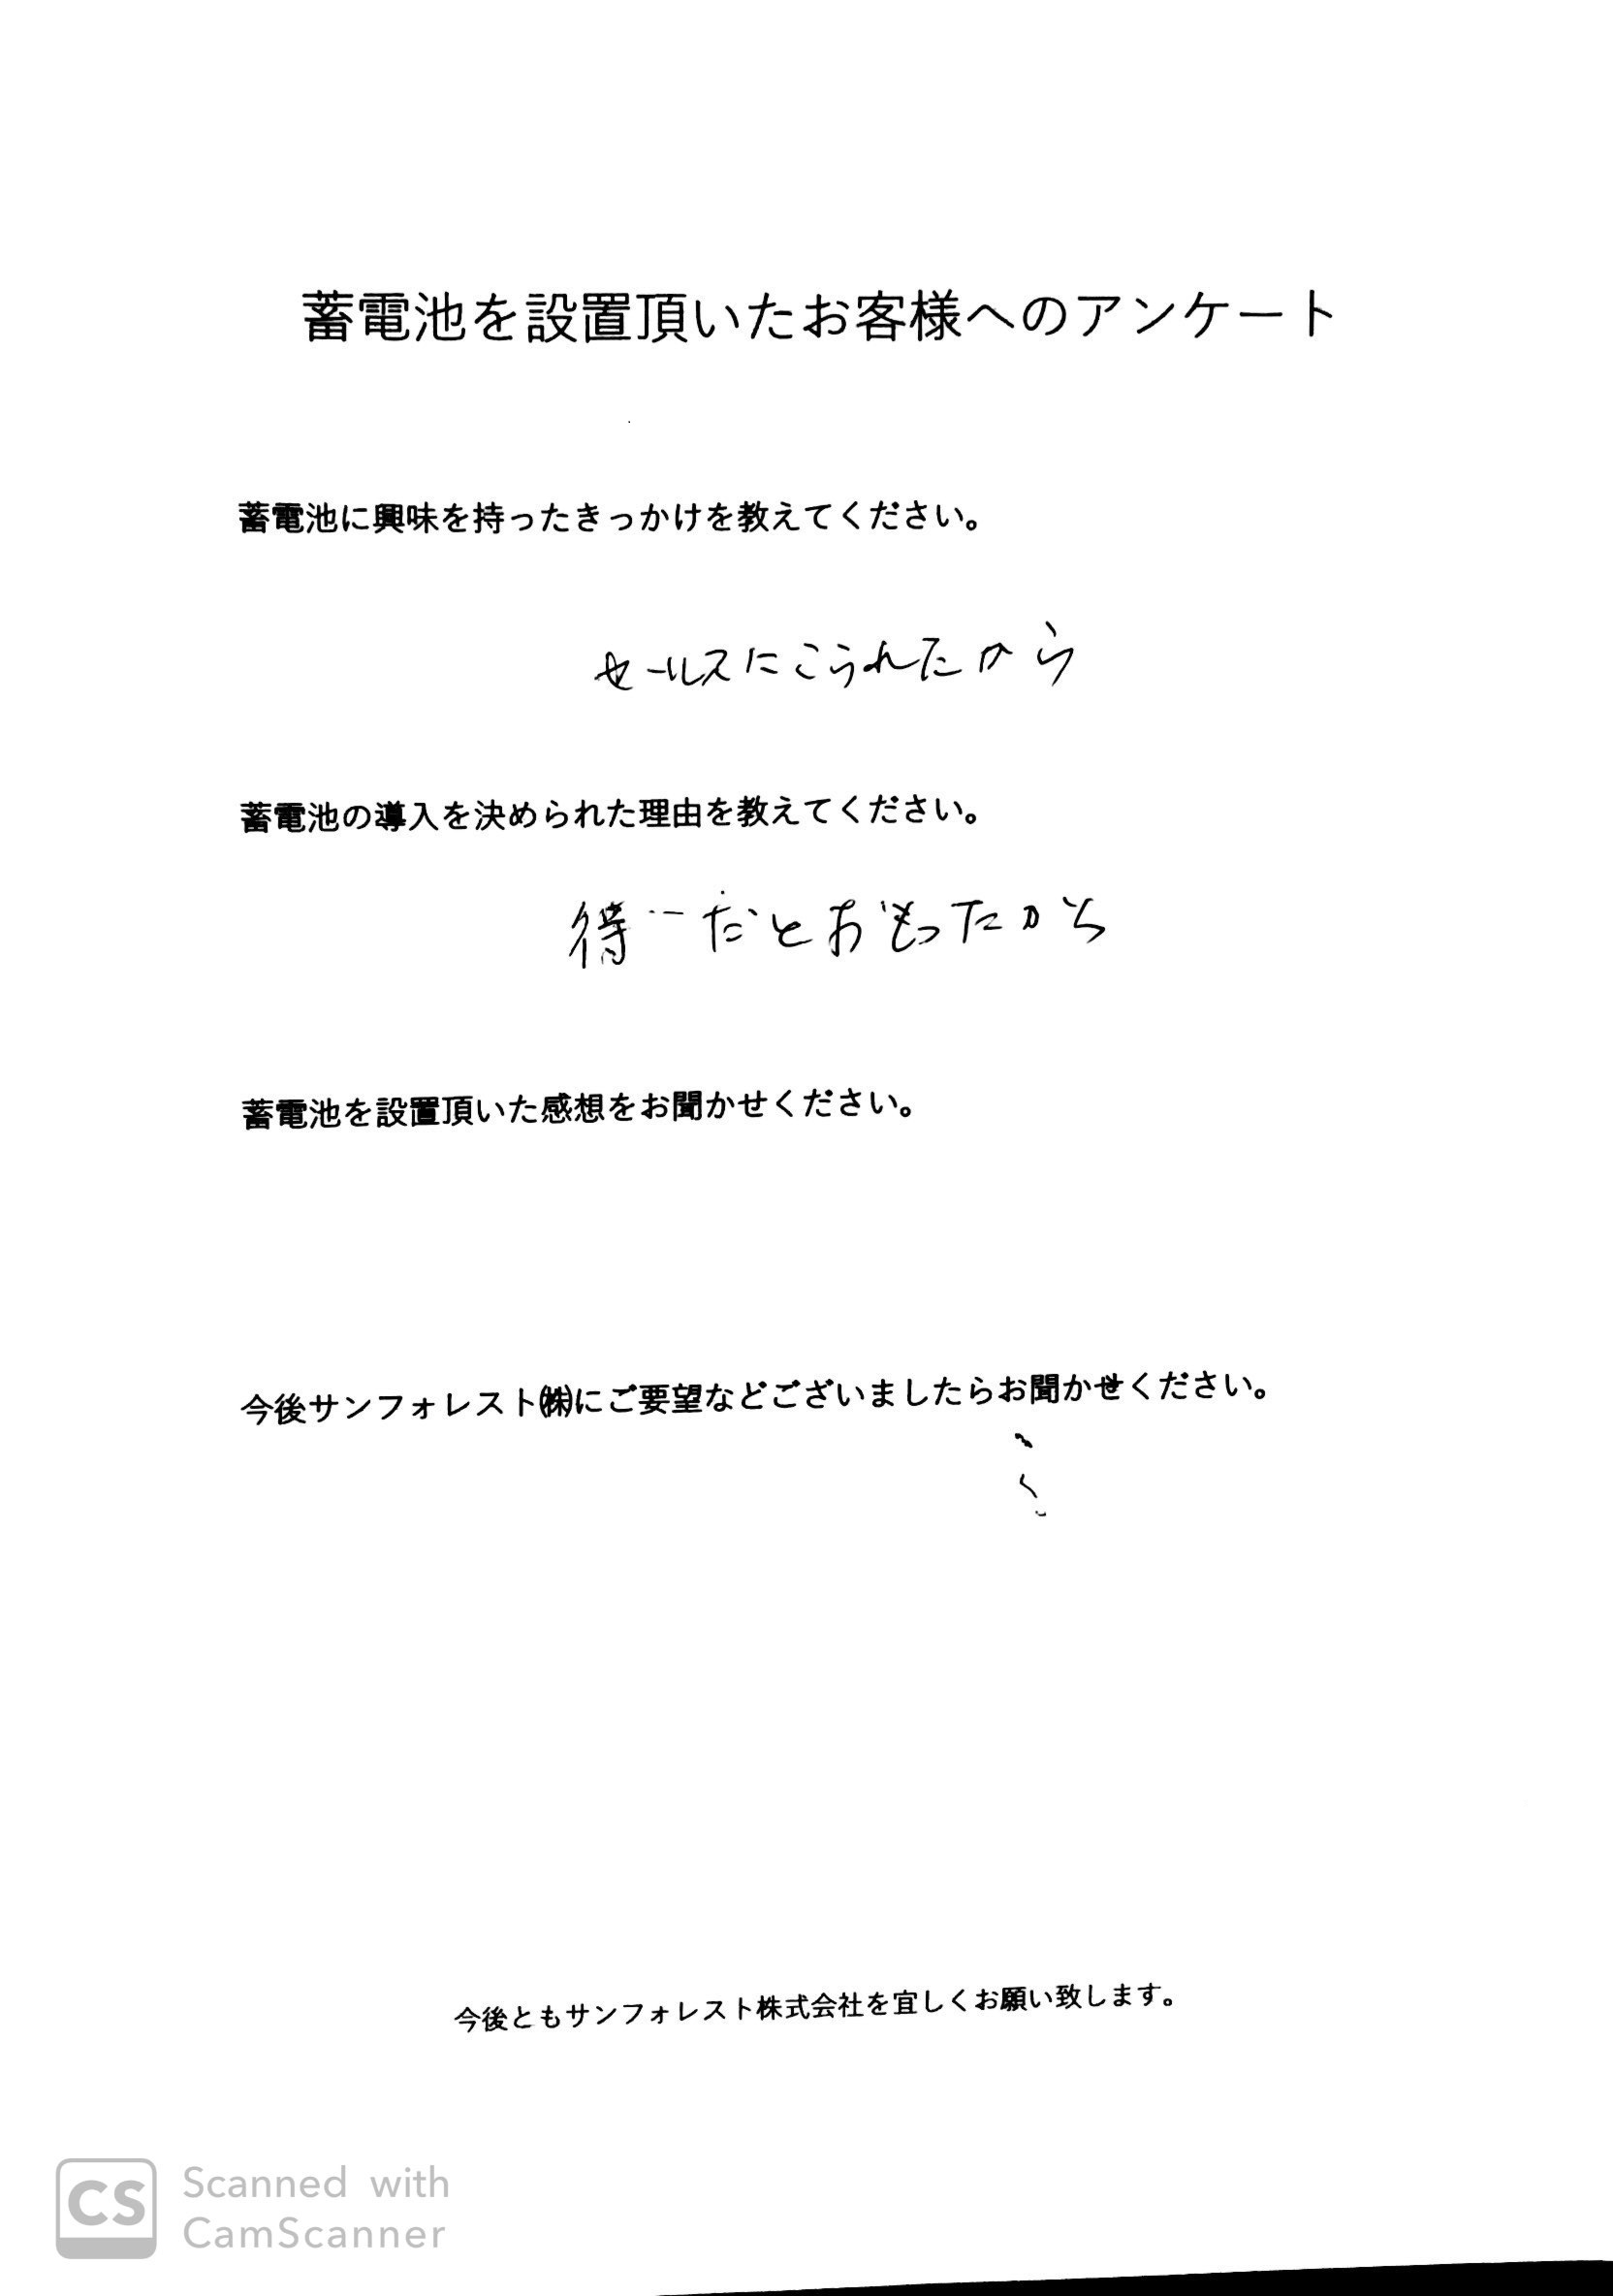 蓄電池を設置頂いたお客様へのアンケート
蓄電池に興味を持ったきっかけを教えてください。
セールスにこられたから
蓄電池の導入を決められた理由を教えてください。
得だとおもったから
蓄電池を設置頂いた感想をお聞かせください。
今後サンフォレスト㈱にご要望などございましたらお聞かせください。
今後ともサンフォレスト株式会社を宜しくお願い致します。
CS
Scanned with
CamScanner